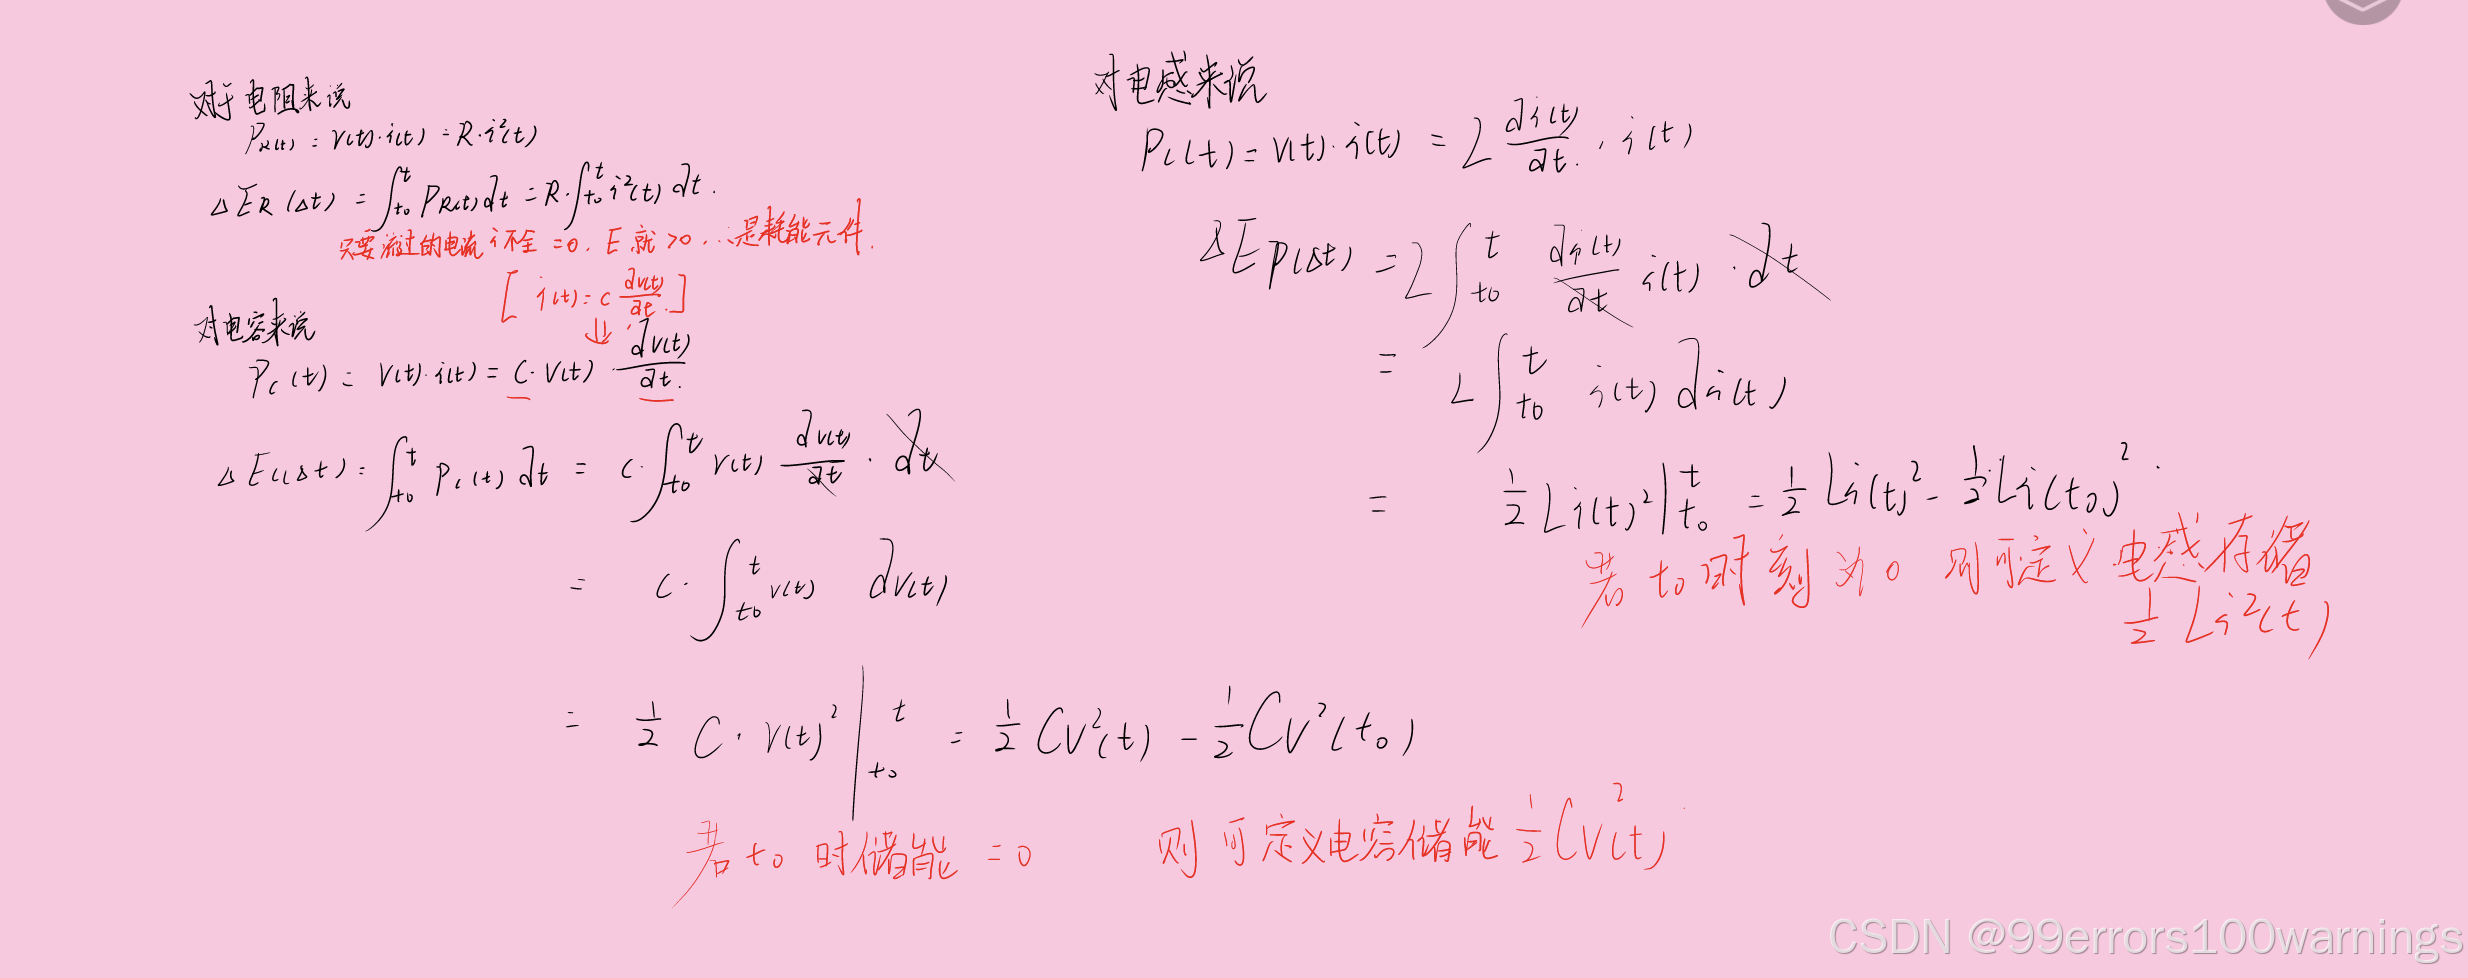 对于电阻来说
P_R(t) = V(t)·i(t) = R·i²(t)
ΔE_R(Δt) = ∫_{t₀}^{t} P_R(t) dt = R·∫_{t₀}^{t} i²(t) dt.
只要流过的电流 i不全 =0, E 就 >0, ∴是耗能元件.
[ i(t) = C dv(t)/dt. ]
⇓
对电容来说
P_C(t) = V(t)·i(t) = C·V(t)·dV(t)/dt.
ΔE_C(Δt) = ∫_{t₀}^{t} P_C(t) dt = C·∫_{t₀}^{t} V(t) dV(t)/dt · dt
= C·∫_{t₀}^{t} V(t) dV(t)
= 1/2 C·V(t)² |_{t₀}^{t} = 1/2 CV²(t) - 1/2 CV²(t₀)
若 t₀ 时储能 = 0 则可定义电容储能 1/2 CV(t)²
对电感来说
P_L(t) = V(t)·i(t) = L di(t)/dt. · i(t)
ΔE_P(Δt) = L ∫_{t₀}^{t} di(t)/dt i(t) · dt
= L ∫_{t₀}^{t} i(t) di(t)
= 1/2 Li(t)² |_{t₀}^{t} = 1/2 Li(t)² - 1/2 Li(t₀)².
若 t₀ 时刻为 0 则可定义电感存储
1/2 Li²(t)
CSDN @99errors100warnings